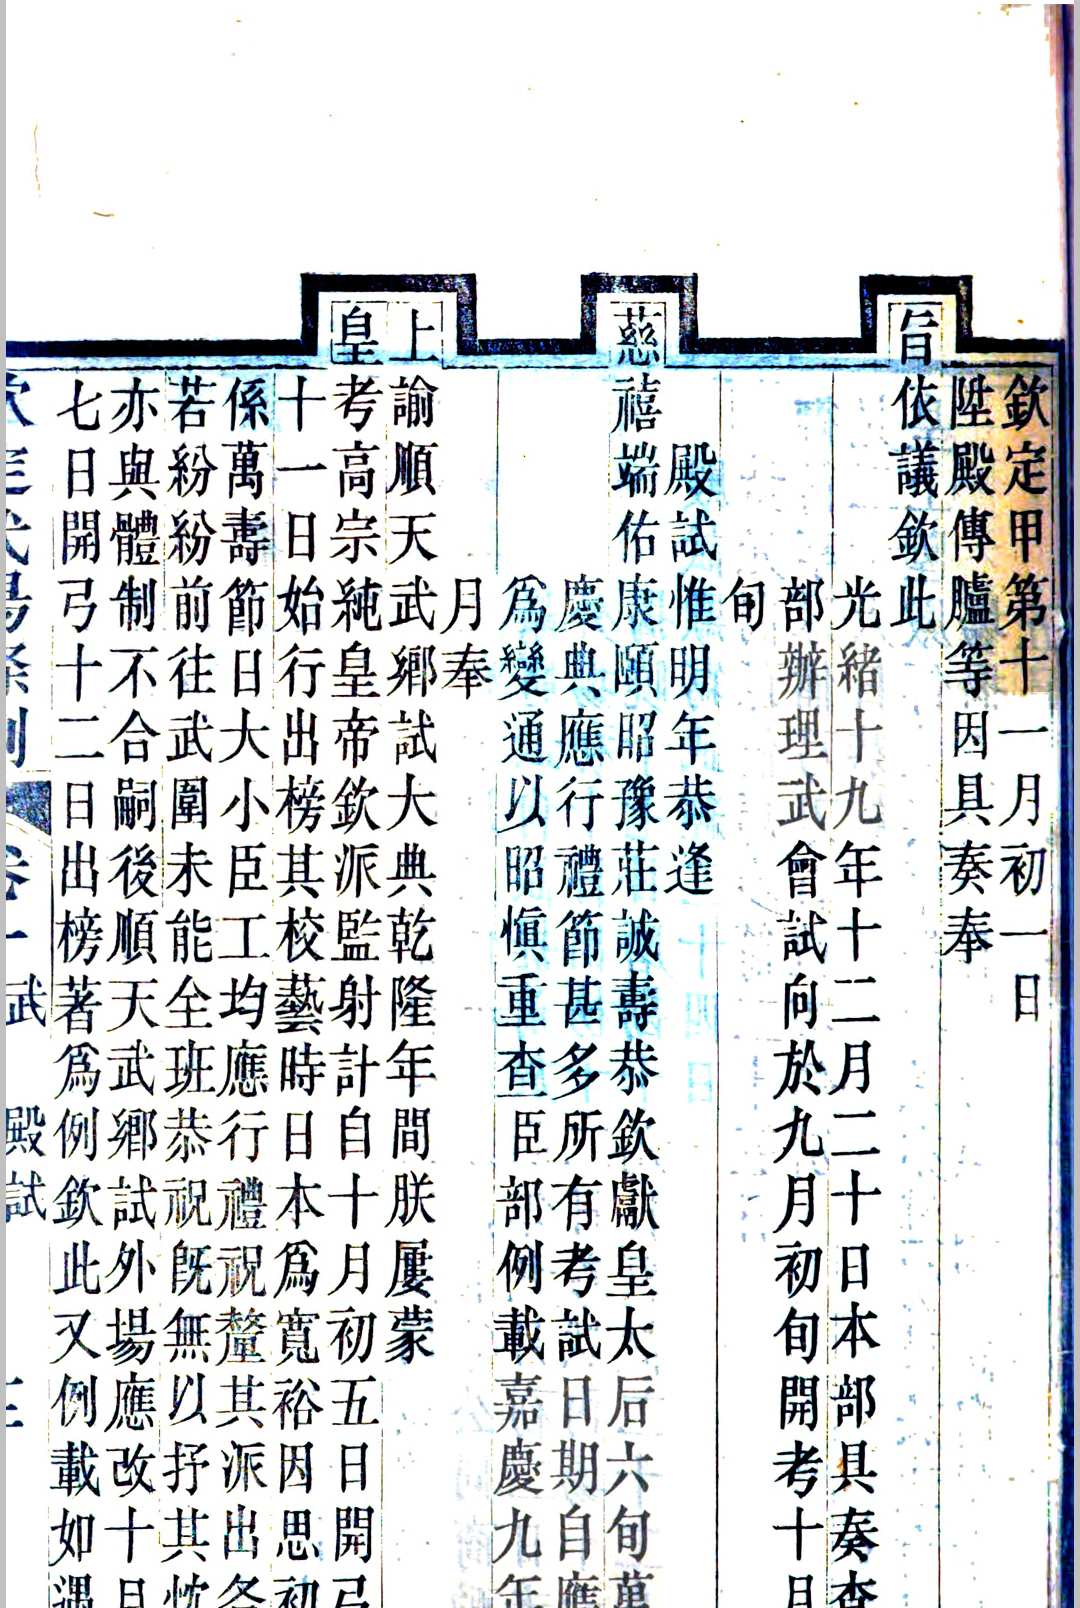 欽定甲第十一月初一日
陞殿傳臚等因具奏奉
旨依議欽此
光緒十九年十二月二十日本部具奏查
部辦理武會試向於九月初旬開考十月
旬
殿試惟明年恭逢
慈禧端佑康頤昭豫莊誠壽恭欽獻皇太后六旬萬
慶典應行禮節甚多所有考試日期自應
為變通以昭慎重查臣部例載嘉慶九年
月奉
上諭順天武鄉試大典乾隆年間朕屢蒙
皇考高宗純皇帝欽派監射計自十月初五日開弓
十一日始行出榜其校藝時日本為寬裕因思初
係萬壽節日大小臣工均應行禮祝釐其派出各
若紛紛前往武圍未能全班恭祝既無以抒其忱
亦與體制不合嗣後順天武鄉試外場應改十月
七日開弓十二日出榜著為例欽此又例載如遇
欽定武場條例 卷一 武 殿試 三